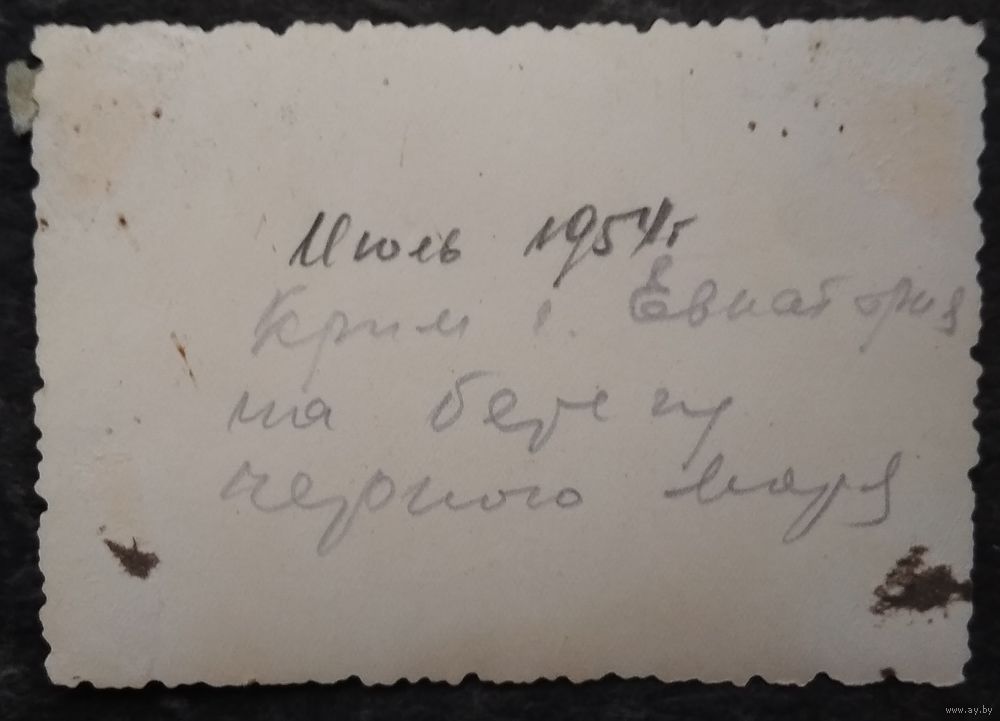 Июль 1954г
Крим г. Евпатория
на берегу
черного моря
www.ay.by